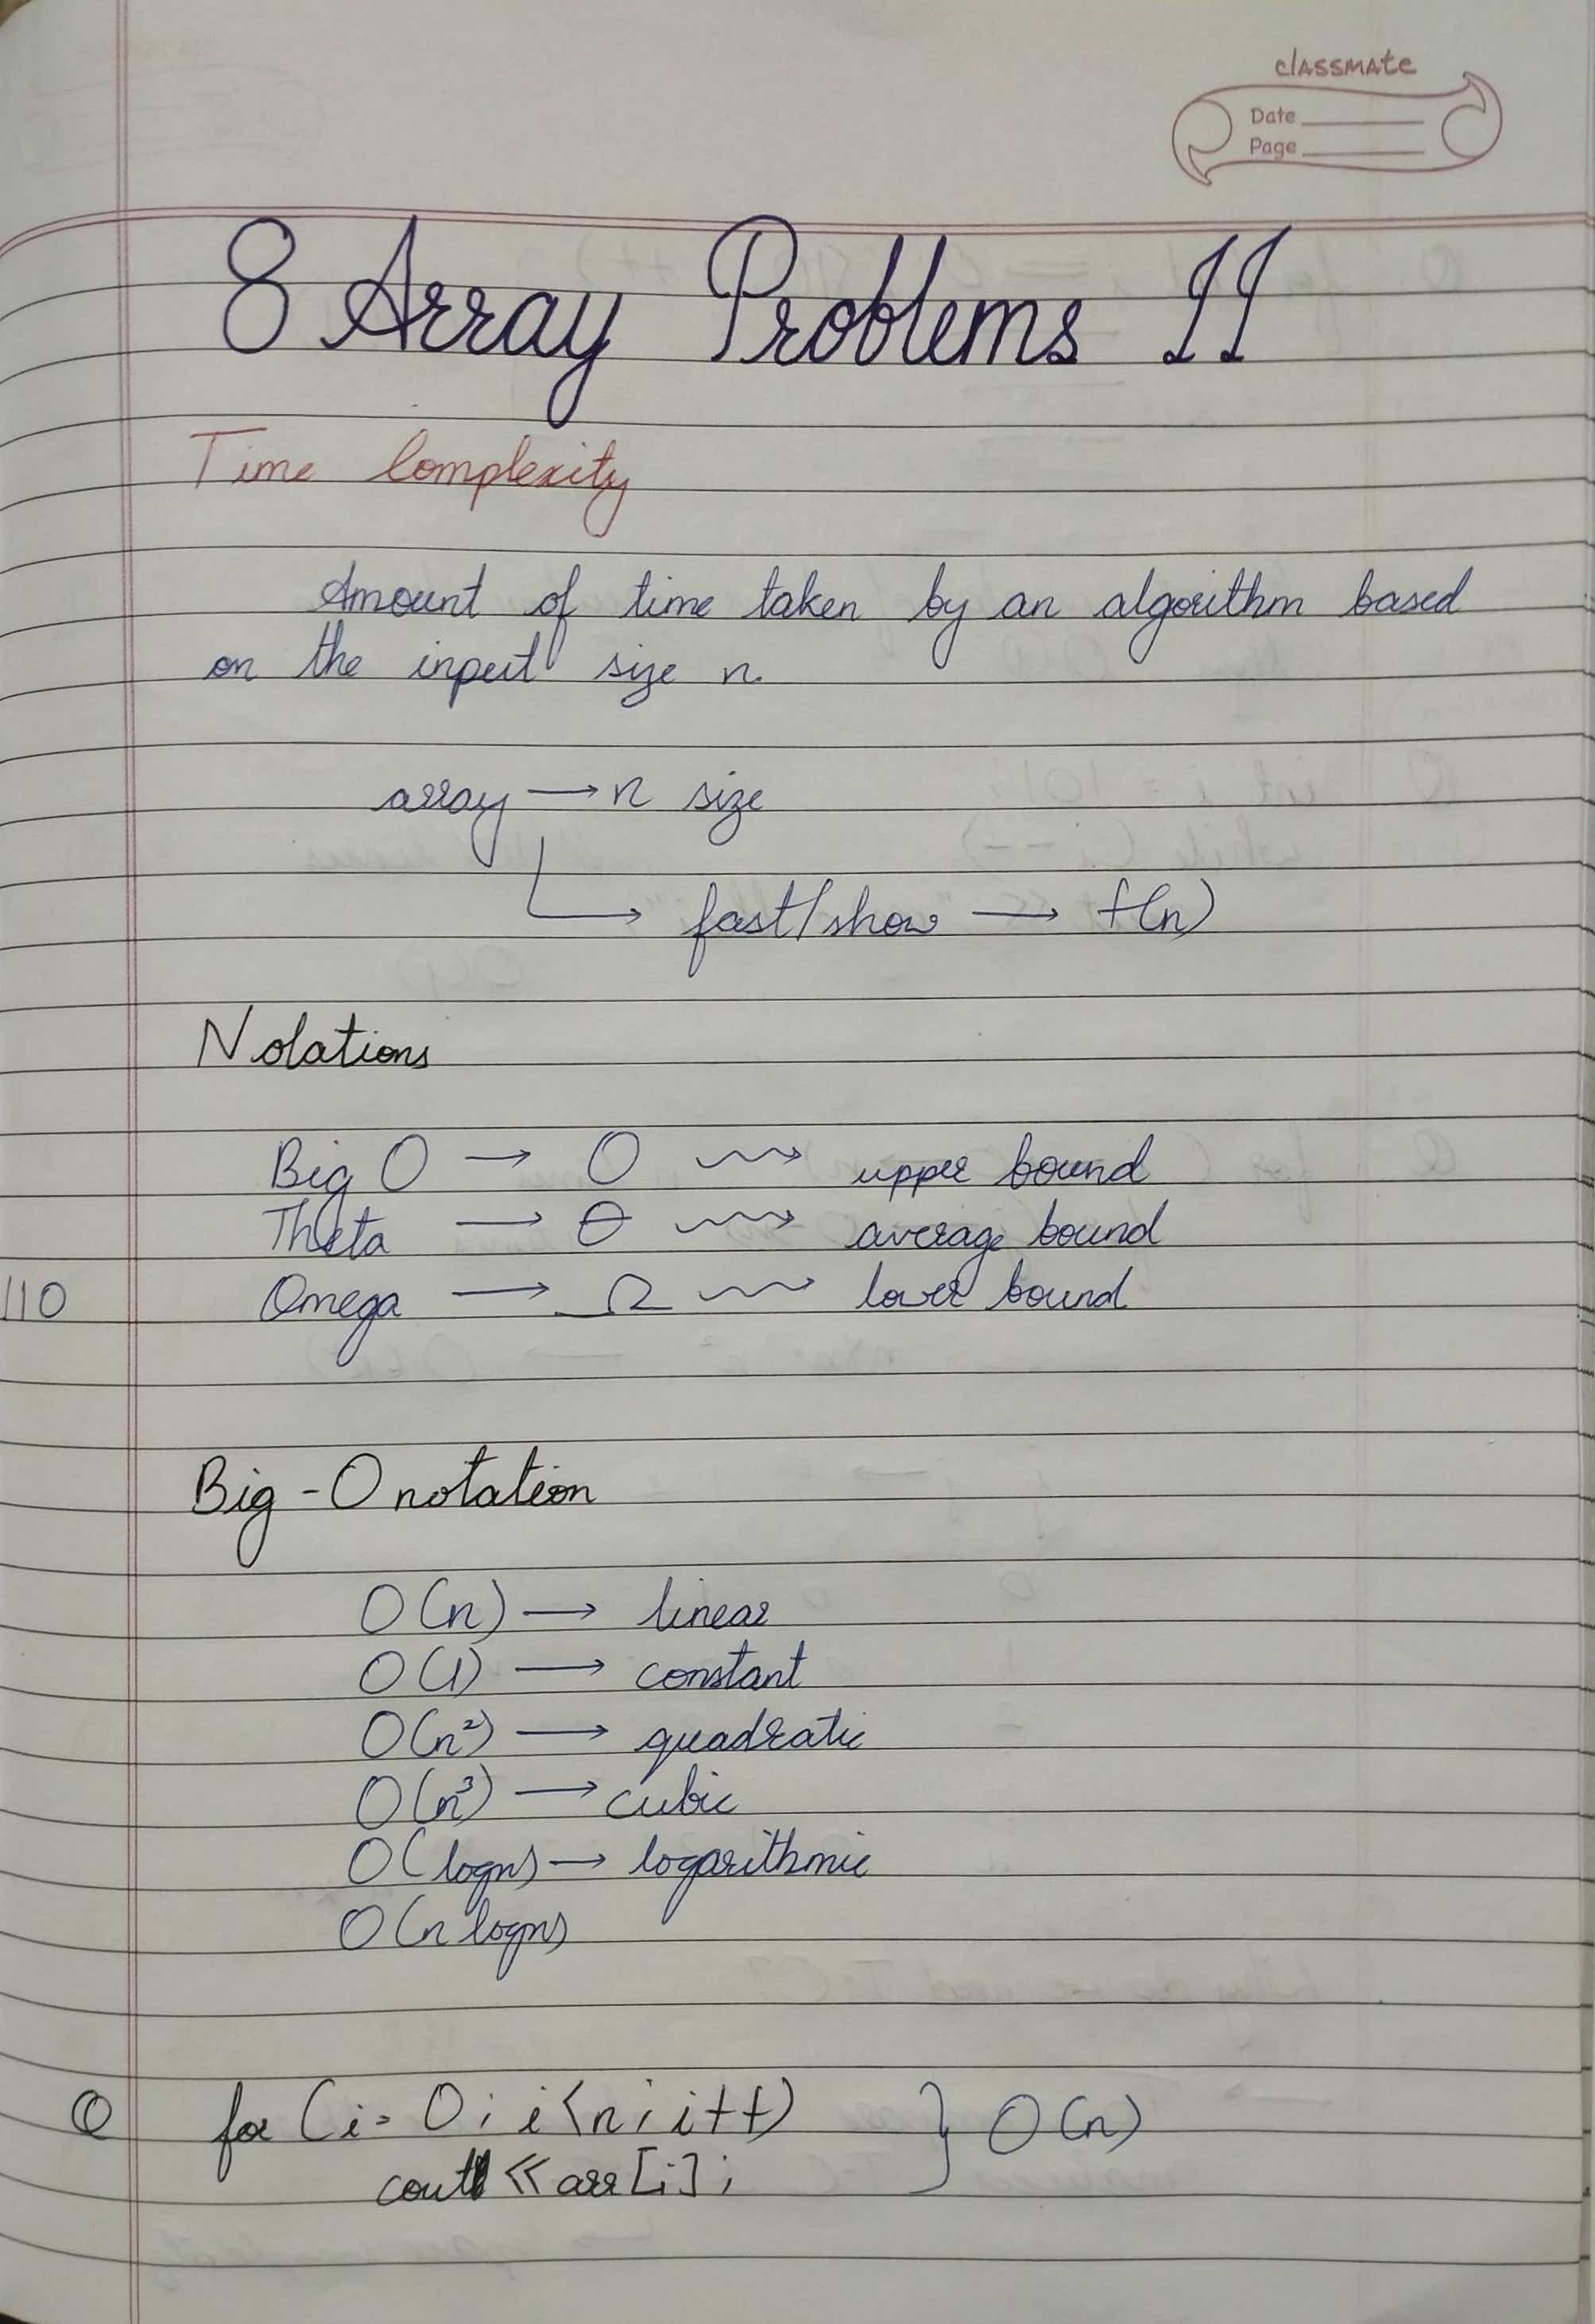 classmate
Date
Page
8 Array Problems II
Time Complexity
Amount of time taken by an algorithm based
on the input size n.
array → n size
→ fast/show → f(n)
Notations
Big O → O ⇝ upper bound
Theta → Θ ⇝ average bound
110 Omega → Ω ⇝ lower bound
Big-O notation
O(n) → linear
O(1) → constant
O(n²) → quadratic
O(n³) → cubic
O(logn) → logarithmic
O(n logn)
Q for (i=0; i<n; i++) } O(n)
cout << arr[i];